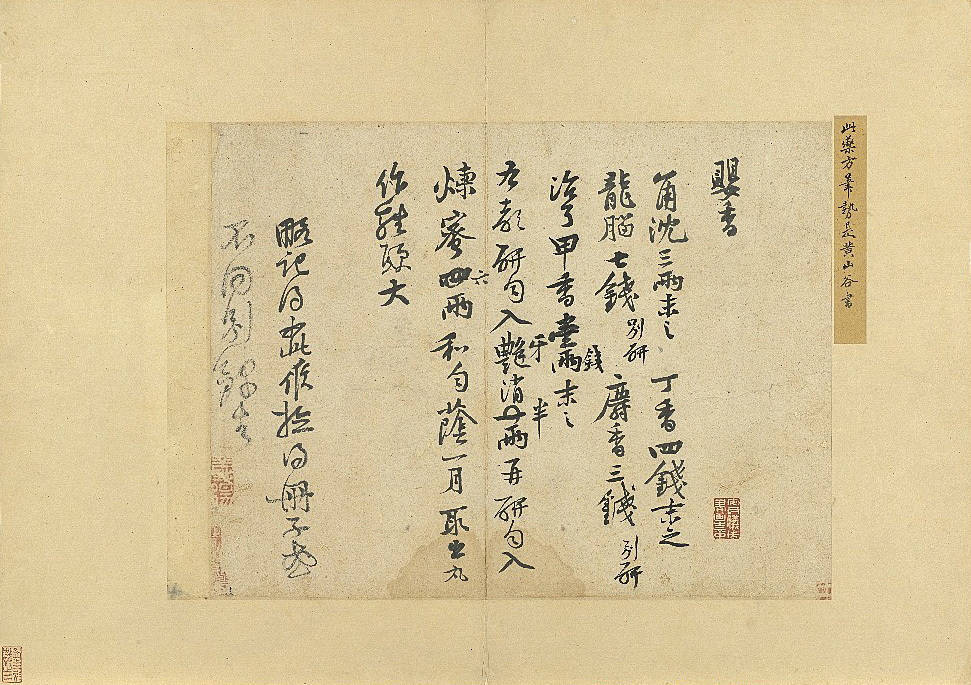 此藥方筆勢是黃山谷書
嬰香
角沈三兩末之 丁香四錢末之
龍腦七錢別研 麝香三錢別研
治了甲香壹兩錢末之
右都研勻入艷牙消半兩再研勻入
煉蜜四六兩和勻蔭一月取出丸
作雞頭大
略記得此候撿得冊子或
不同別錄去